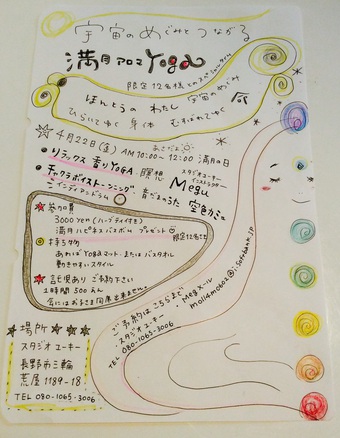 宇宙のめぐみとつながる
満月アロマYoga
限定12名様とのスペシャルタイム
ほんとうの わたし 宇宙のめぐみ 命
ひらいてゆく 身体 むすばれてゆく
4月22日(金) AM10:00〜12:00 満月の日
・リラックス 香りYOGA・瞑想
・チャクラボイストーニング
インディアンドラム
スタジオユーキー
インストラクター
Megu
音だまのうた 空色カミュ
参加費
3000yen(ハーブティ付き)
満月ハピネスバスボム プレゼント
限定12名さま
持ち物
あればYOGAマット・またはバスタオル
動きやすいスタイル
託児あり ご予約下さい
1時間 500えん
ご予約はこちらまで
・スタジオユーキー
TEL 080-1065-3006
・Megメール
場所
スタジオユーキー
長野市三輪
荒屋1189-18
TEL 080-1065-3006